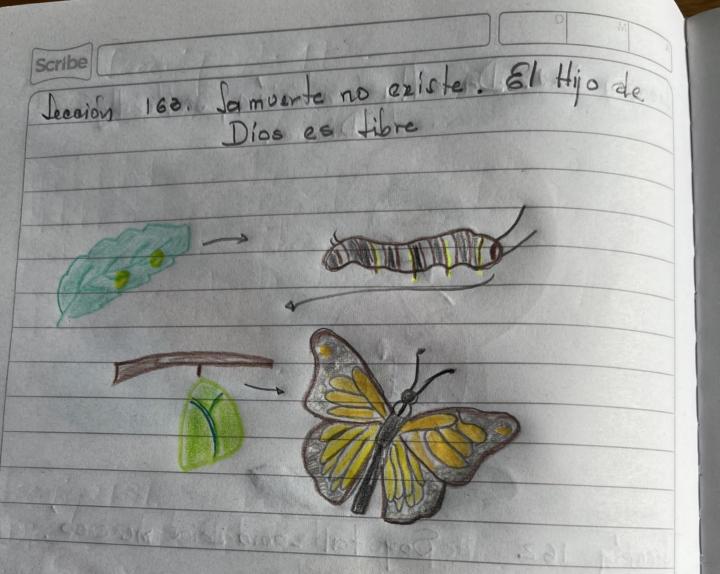 Scribe
D M A
Lección 163. La muerte no existe. El Hijo de
Dios es libre